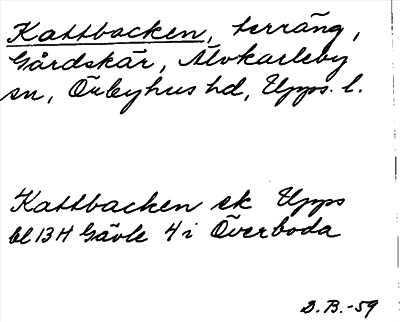 Kattbacken, terräng,
Gårdskär, Älvkarleby
sn, Örbyhus hd, Upps. l.
Kattbacken ek Upps
bl 13 H Gävle 4 i Överboda
D.B.-59